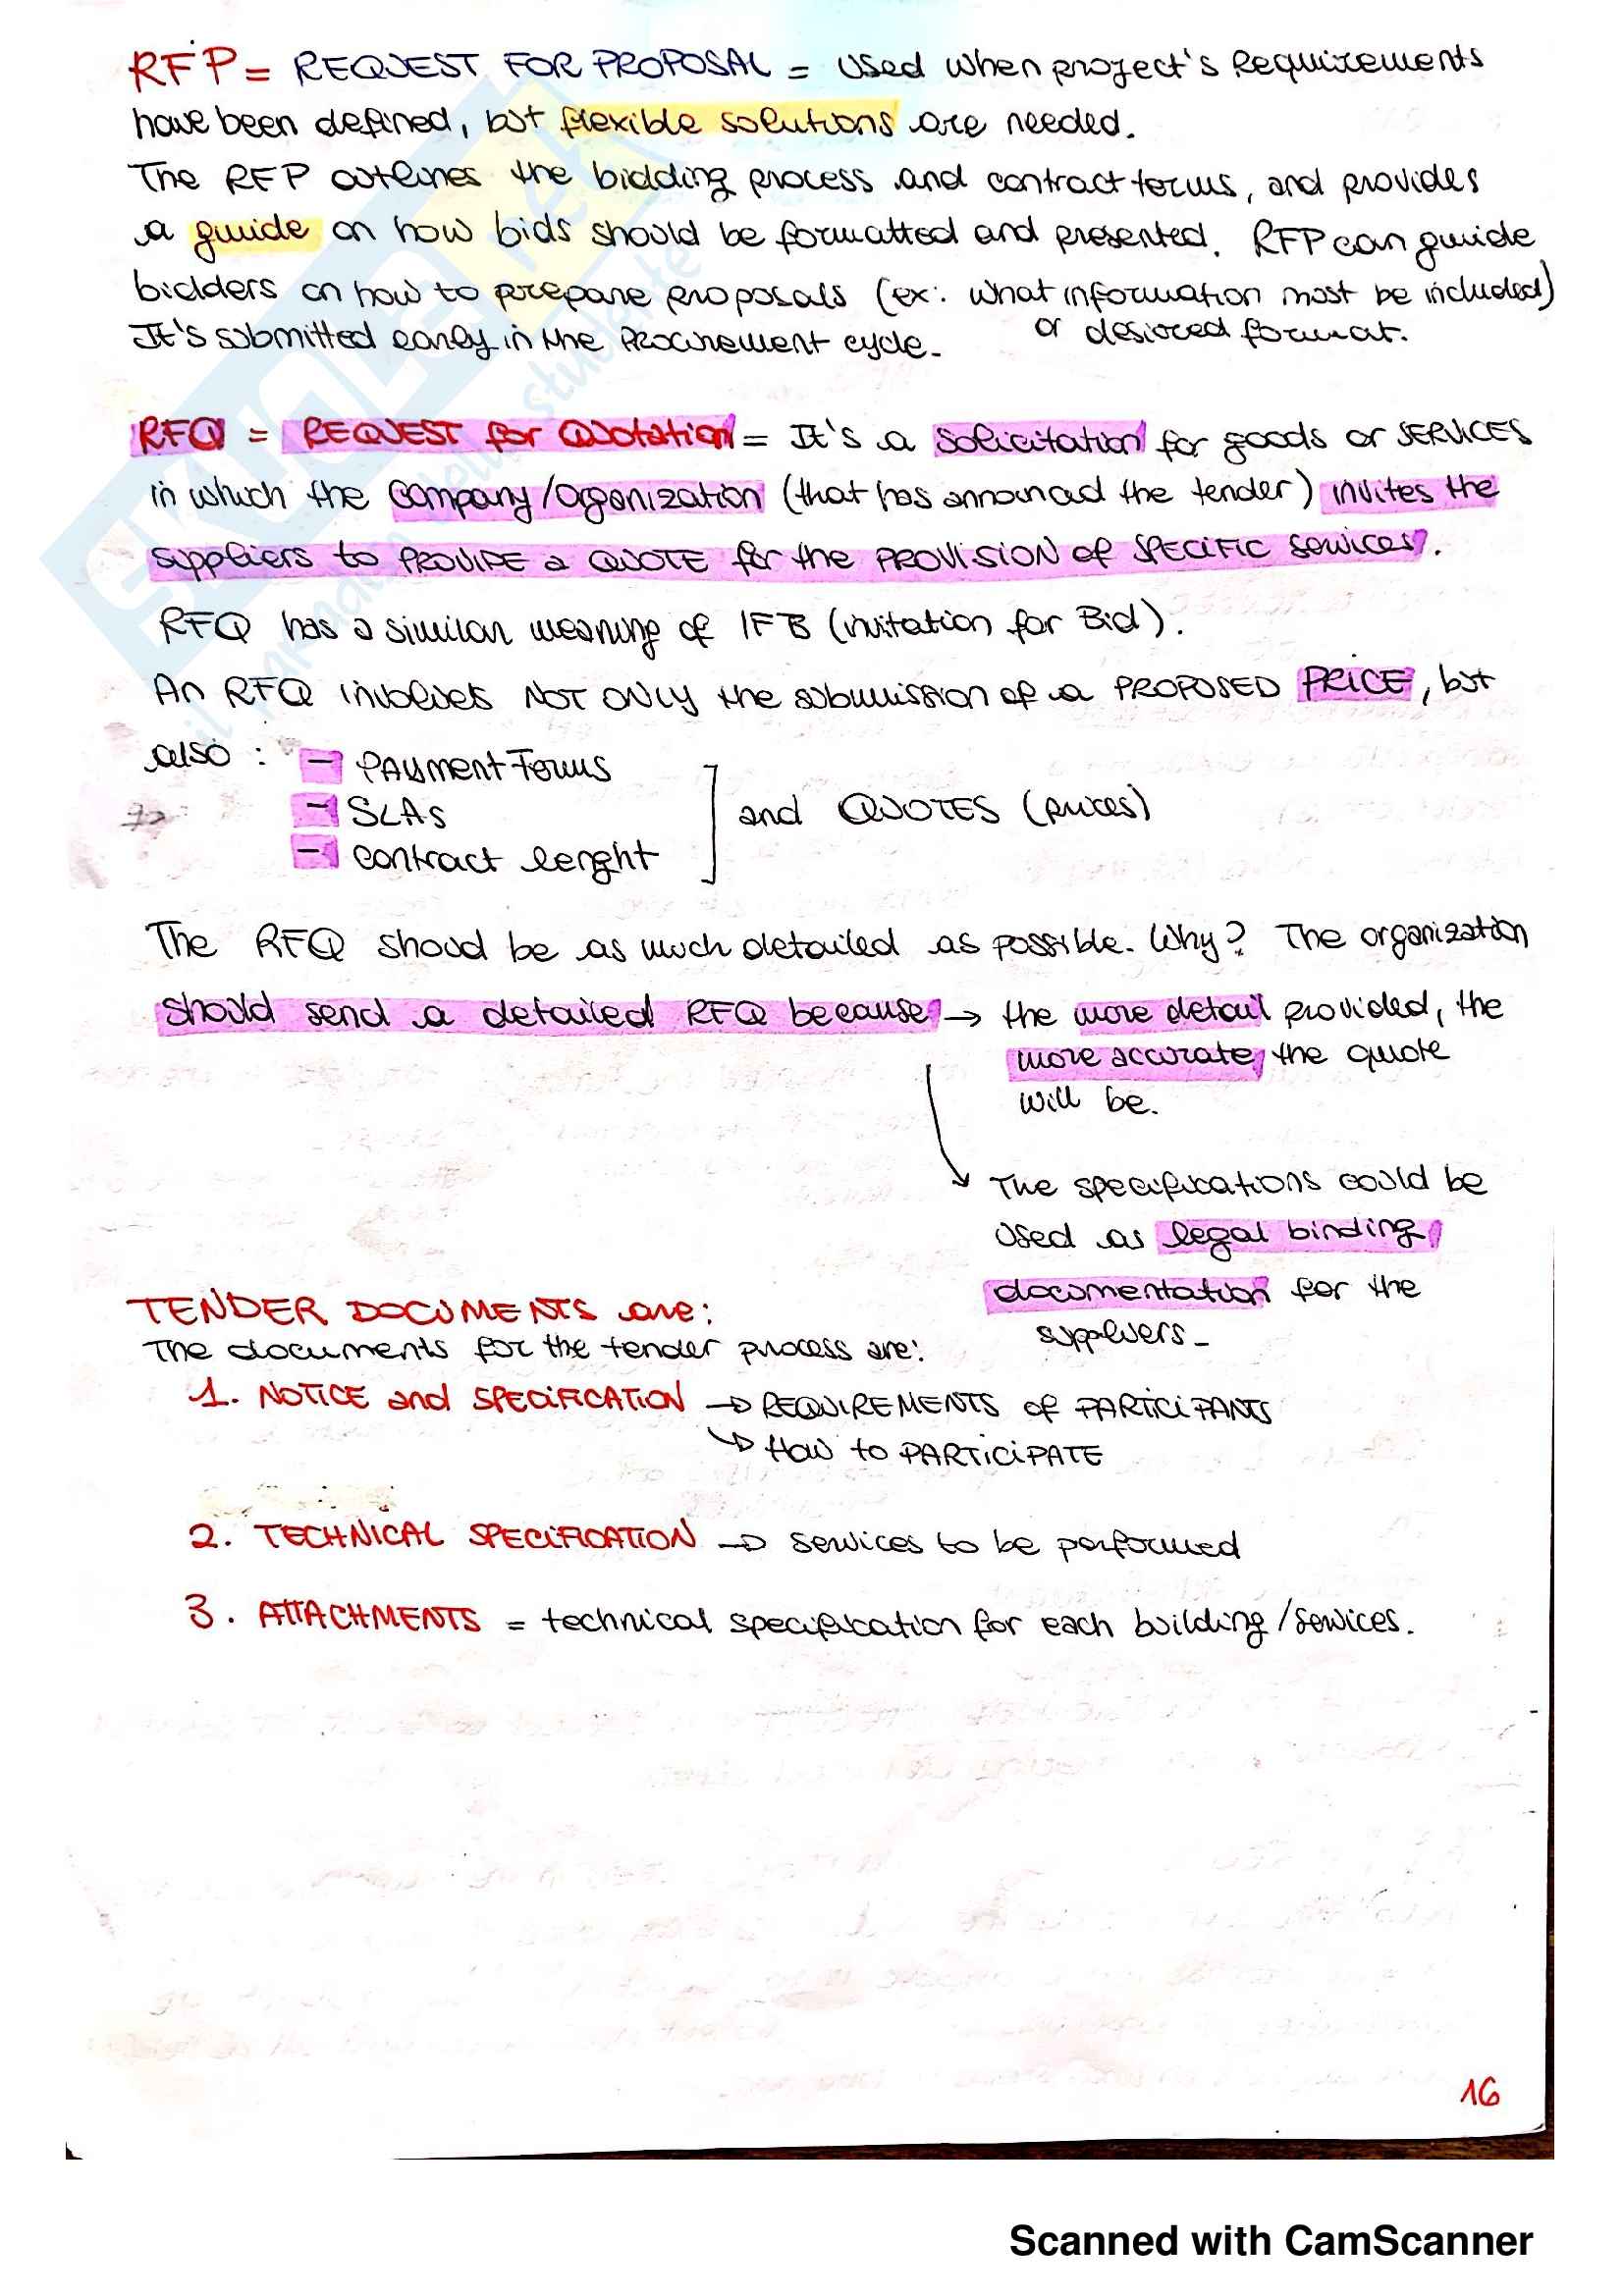 RFP = REQUEST FOR PROPOSAL = Used when project's Requirements
have been defined, but flexible solutions are needed.
The RFP outlines the bidding process and contract terms, and provides
a guide on how bids should be formatted and presented. RFP can guide
bidders on how to prepare proposals (ex: what information most be included)
or desiored format.
It's submitted early in the Procurement cycle.
RFQ = REQUEST for Quotation = It's a solicitation for goods or SERVICES
in which the company/organization (that has announced the tender) invites the
suppliers to PROVIDE a QUOTE for the PROVISION of SPECIFIC services.
RFQ has a similar meaning of IFB (invitation for Bid).
An RFQ involves NOT ONLY the submission of a PROPOSED PRICE, but
also : - PAYMENT Terms
- SLAs
- contract lenght
and QUOTES (prices)
The RFQ shoud be as much detailed as possible. Why? The organization
should send a detailed RFQ because → the more detail provided, the
more accurate the quote
will be.
The specifications could be
used as legal binding
documentation for the
suppliers
TENDER DOCUMENTS are:
The documents for the tender process are:
1. NOTICE and SPECIFICATION → REQUIREMENTS of PARTICIPANTS
↳ How to PARTICIPATE
2. TECHNICAL SPECIFICATION → services to be performed
3. ATTACHMENTS = technical specification for each building/services.
16
Scanned with CamScanner